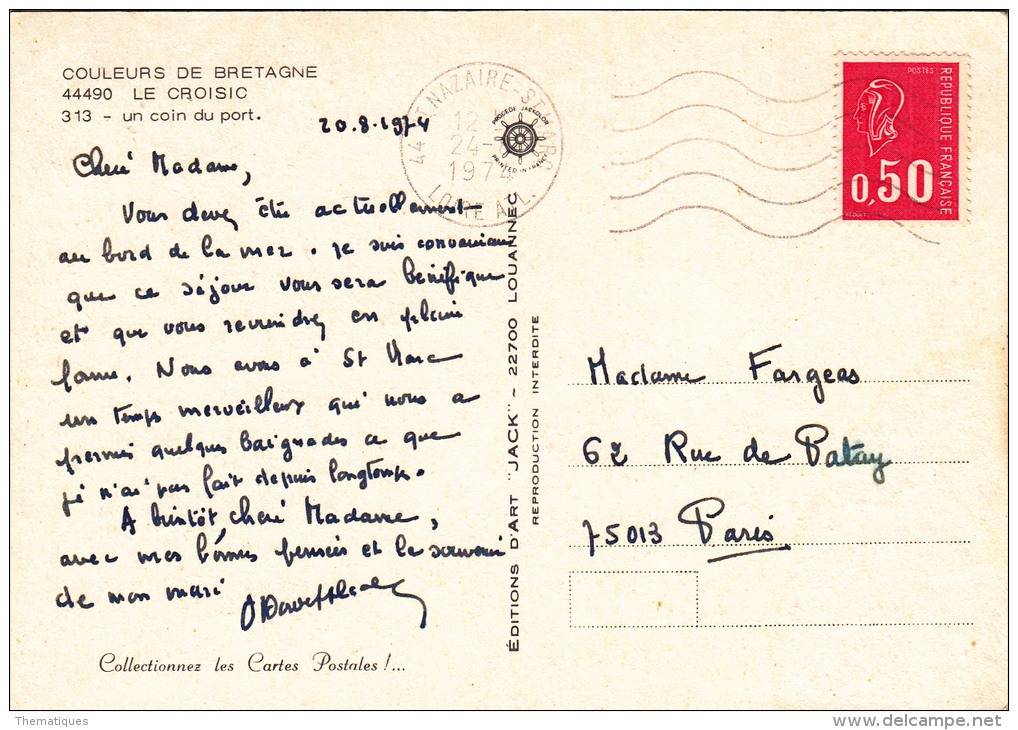 COULEURS DE BRETAGNE
44490 LE CROISIC
313 - un coin du port.
20.8.1974
Cheré Madame,
Vous devez être actuellement
au bord de la mer. Je suis convaincue
que ce séjour vous sera bénéfique
et que vous reviendrez en pleine
forme. Nous avons à St Marc
un temps merveilleux qui nous a
permis quelques baignades ce que
je n'ai pas fait depuis longtemps.
A bientôt, cheré Madame,
avec mes bonnes pensées et le souvenir
de mon mari
Collectionnez les Cartes Postales !...
44 ST NAZAIRE-S
12
24-
1974
LOIRE ATL.
PROCEDE JAEKOLOR
PRINTED IN FRANCE
ÉDITIONS D'ART "JACK" ~ 22700 LOUANNEC
REPRODUCTION INTERDITE
POSTES
RÉPUBLIQUE FRANÇAISE
0,50
Madame Fargeas
62 Rue de Patay
75013 Paris
Thematiques
www.delcampe.net